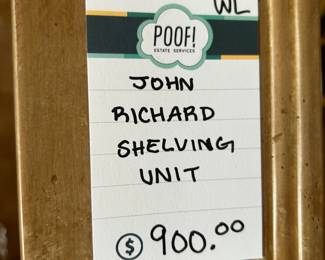 WL
POOF!
ESTATE SERVICES
JOHN
RICHARD
SHELVING
UNIT
$ 900.00